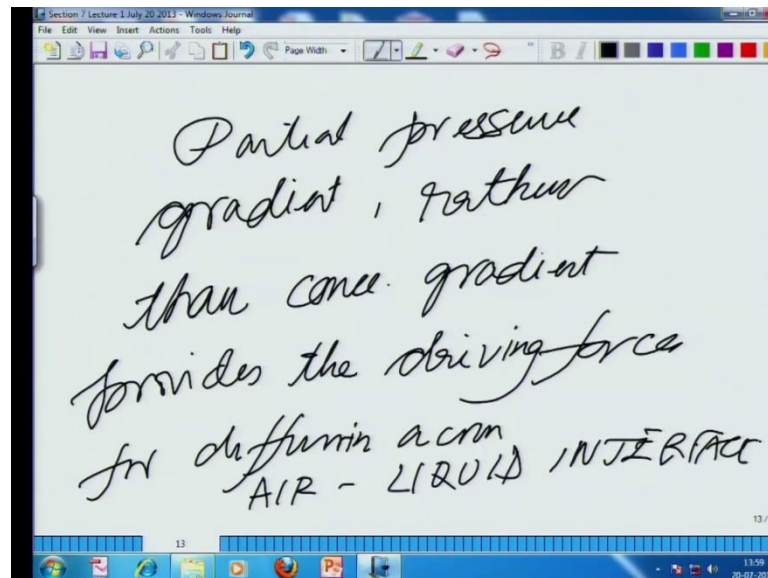 Section 7 Lecture 1 July 20 2013 - Windows Journal
File Edit View Insert Actions Tools Help
Page Width
B I
Partial pressure
gradient, rather
than conc. gradient
provides the driving force
for diffusion across
AIR - LIQUID INTERFACE
13 /
13
13:59
20-07-20